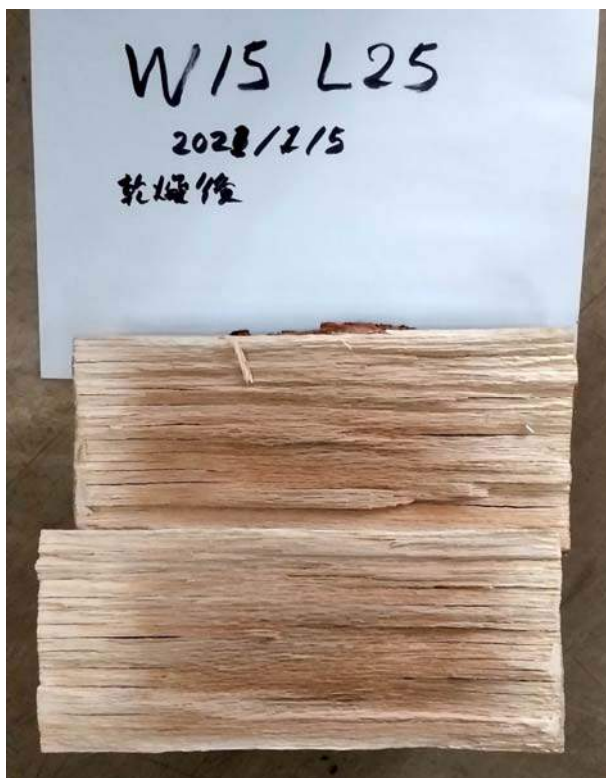 W15 L25
2021/1/5
乾燥後